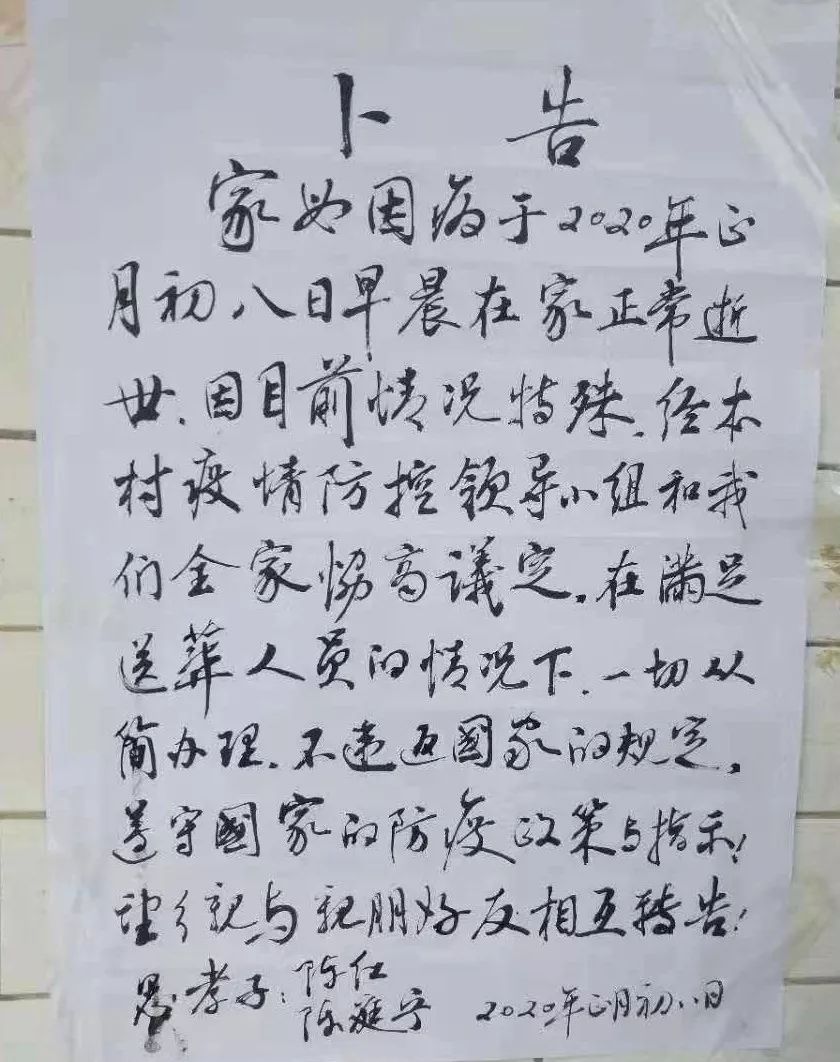 卜 告
家母因病于2020年正
月初八日早晨在家正常逝
世、因目前情况特殊、经本
村疫情防控领导小组和我
们全家协商議定，在满足
送葬人员的情况下、一切从
简办理、不违返國家的规定，
遵守國家的防疫政策与指示！
望乡亲与親朋好友相互轉告！
孝子：陈仁
陈 宁 2020年正月初八日